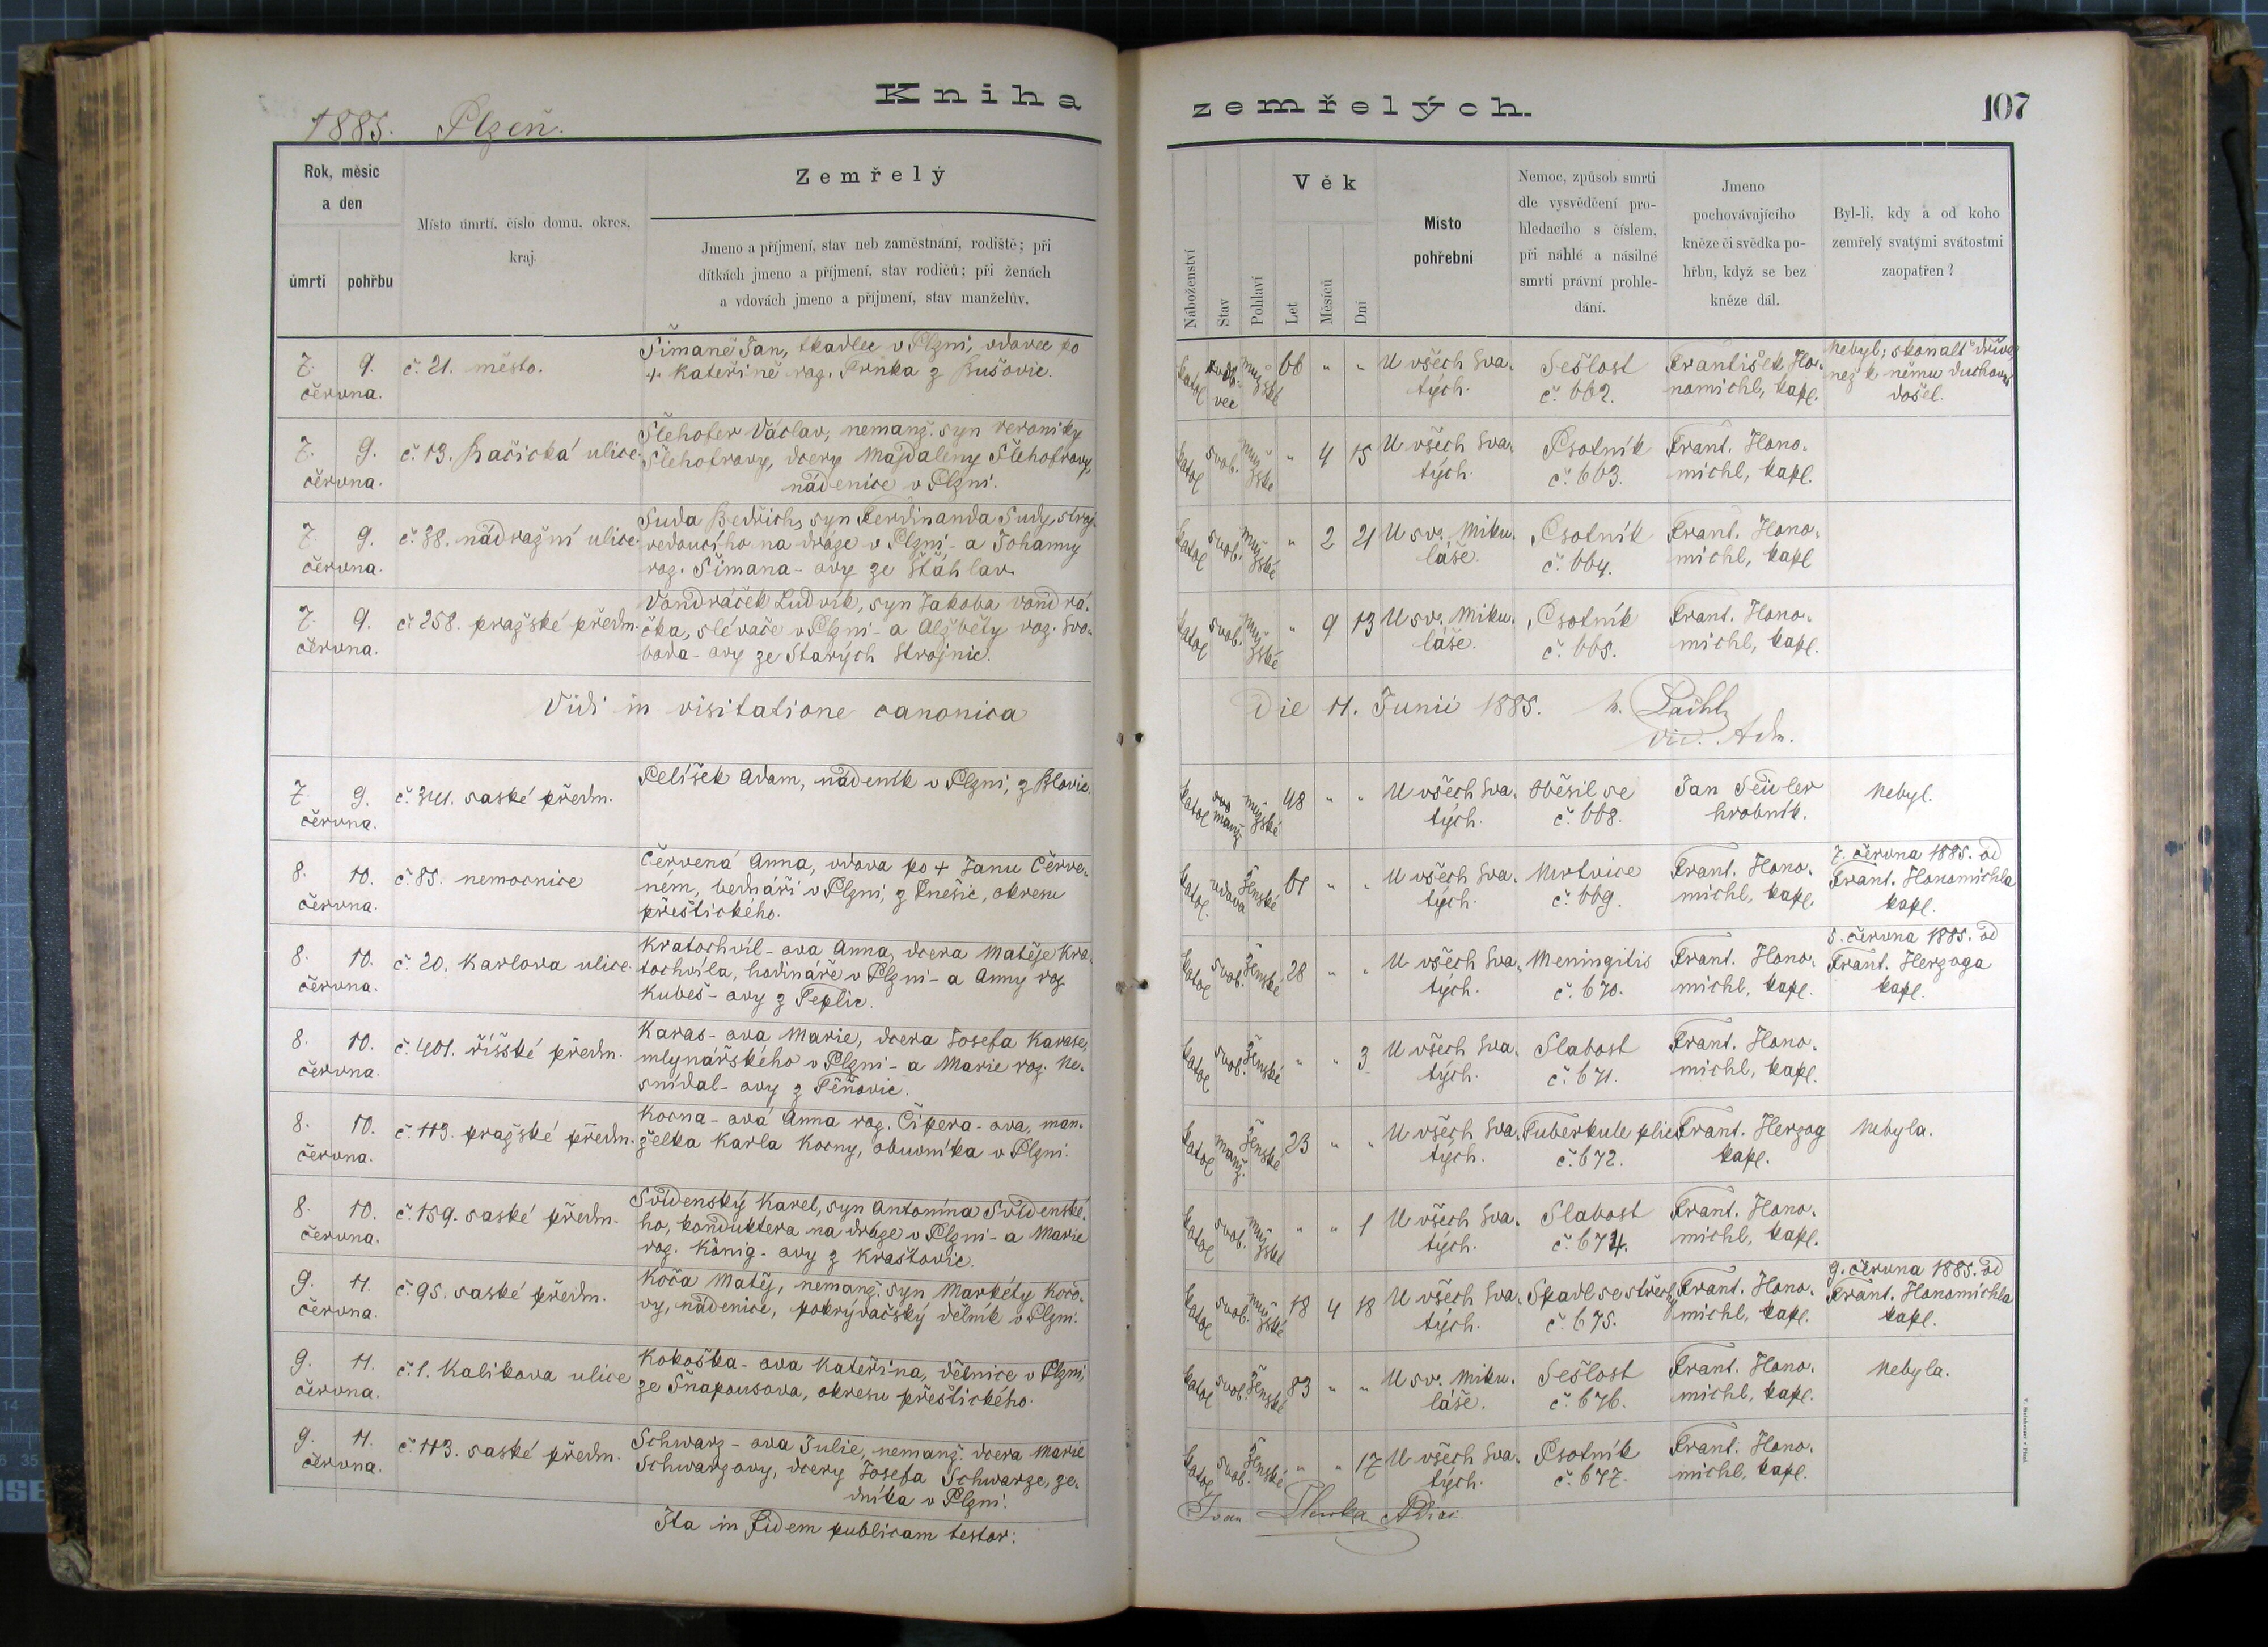 Kniha zemřelých.
107
1885. Plzeň.
Rok, měsíc
a den
úmrtí
pohřbu
Místo úmrtí, číslo domu, okres,
kraj.
Zemřelý
Jmeno a příjmení, stav neb zaměstnání, rodiště; při
dítkách jmeno a příjmení, stav rodičů; při ženách
a vdovách jmeno a příjmení, stav manželův.
Náboženství
Stav
Pohlaví
Věk
Let
Měsíců
Dní
Místo
pohřební
Nemoc, způsob smrti
dle vysvědčení pro-
hledacího s číslem,
při náhlé a násilné
smrti právní prohle-
dání.
Jmeno
pochovávajícího
kněze či svědka po-
hřbu, když se bez
kněze dál.
Byl-li, kdy a od koho
zemřelý svatými svátostmi
zaopatřen?
7. 9.
června.
č. 21. město.
Šimaně Jan, tkadlec v Plzni, vdovec po
+ Kateřině roz. Trnka z Bušovic.
katol vdovec mužské 66 " "
U všech Sva-
tých.
Sešlost
č. 662.
František Ho-
nomichl, kapl.
Nebyl; skonalť dříve,
než k němu duchovní
došel.
7. 9.
června.
č. 13. Račická ulice.
Šlehofer Václav, nemanž. syn Veroniky
Šlehofrovy, dcery Majdaleny Šlehofrovy,
nádenice v Plzni.
katol svob. mužské " 4 15
U všech Sva-
tých.
Psotník
č. 663.
Frant. Hono-
michl, kapl.
7. 9.
června.
č. 38. nádražní ulice.
Suda Bedřich, syn Ferdinanda Sudy, stroj-
vedoucího na dráze v Plzni - a Johanny
roz. Šimana-ovy ze Štáhlav.
katol svob. mužské " 2 21
U sv. Miku-
láše.
Psotník
č. 664.
Frant. Hono-
michl, kapl
7. 9.
června.
č. 258. pražské předm.
Vondráček Ludvík, syn Jakoba Vondrá-
čka, slévače v Plzni - a Alžběty roz. Svo-
boda-ovy ze Starých Strojnic.
katol svob. mužské " 9 13
U sv. Miku-
láše.
Psotník
č. 665.
Frant. Hono-
michl, kapl.
Vidi in visitatione canonica Die 11. Junii 1885.
vic. Adm.
7. 9.
června.
č. 341. saské předm.
Pelíšek Adam, nádeník v Plzni, z Blovic.
katol manž mužské 48 " "
U všech Sva-
tých.
Oběsil se
č. 668.
Jan Seidler
hrobník.
Nebyl.
8. 10.
června.
č. 85. nemocnice
Červená Anna, vdova po + Janu Červe-
ném, bednáři v Plzni, z Kněžic, okresu
přeštického.
katol. vdova ženské 61 " "
U všech Sva-
tých.
Mrtvice
č. 669.
Frant. Hono-
michl, kapl.
7. června 1885. od
Frant. Honomichla
kapl.
8. 10.
června.
č. 20. Karlova ulice.
Kratochvíl-ova Anna, dcera Matěje Kra-
tochvíla, hodináře v Plzni - a Anny roz.
Kubeš-ovy z Teplic.
katol svob. ženské 28 " "
U všech Sva-
tých.
Meningitis
č. 670.
Frant. Hono-
michl, kapl.
5. června 1885. od
Frant. Herzoga
kapl.
8. 10.
června.
č. 401. říšské předm.
Karas-ova Marie, dcera Josefa Karase,
mlynářského v Plzni - a Marie roz. Ne-
snídal-ovy z Těňovic.
katol svob. ženské " " 3
U všech Sva-
tých.
Slabost
č. 671.
Frant. Hono-
michl, kapl.
8. 10.
června.
č. 113. pražské předm.
Kocna-ová Anna roz. Čipera-ova, man-
želka Karla Kocny, obuvníka v Plzni.
katol manž. ženské 23 " "
U všech Sva-
tých.
Tuberkule plic
č. 672.
Frant. Herzog
kapl.
Nebyla.
8. 10.
června.
č. 159. saské předm.
Svídenský Karel, syn Antonína Svídenské-
ho, konduktera na dráze v Plzni - a Marie
roz. König-ovy z Kraštovic.
katol svob. mužské " " 1
U všech Sva-
tých.
Slabost
č. 674.
Frant. Hono-
michl, kapl.
9. 11.
června.
č. 95. saské předm.
Koča Matěj, nemanž. syn Markéty Kočo-
vy, nádenice, pokrývačský dělník v Plzni.
katol svob. mužské 18 4 18
U všech Sva-
tých.
Spadl se střechy
č. 675.
Frant. Hono-
michl, kapl.
9. června 1885. od
Frant. Honomichla
kapl.
9. 11.
června.
č. 1. Kalikova ulice
Kokoška-ova Kateřina, dělnice v Plzni,
ze Šnapousova, okresu přeštického.
katol svob. ženské 83 " "
U sv. Miku-
láše.
Sešlost
č. 676.
Frant. Hono-
michl, kapl.
Nebyla.
9. 11.
června.
č. 113. saské předm.
Schwarz-ova Julie, nemanž. dcera Marie
Schwarzovy, dcery Josefa Schwarze, ze-
dníka v Plzni.
katol svob. ženské " " 17
U všech Sva-
tých.
Psotník
č. 677.
Frant. Hono-
michl, kapl.
Ita in fidem publicam testor: